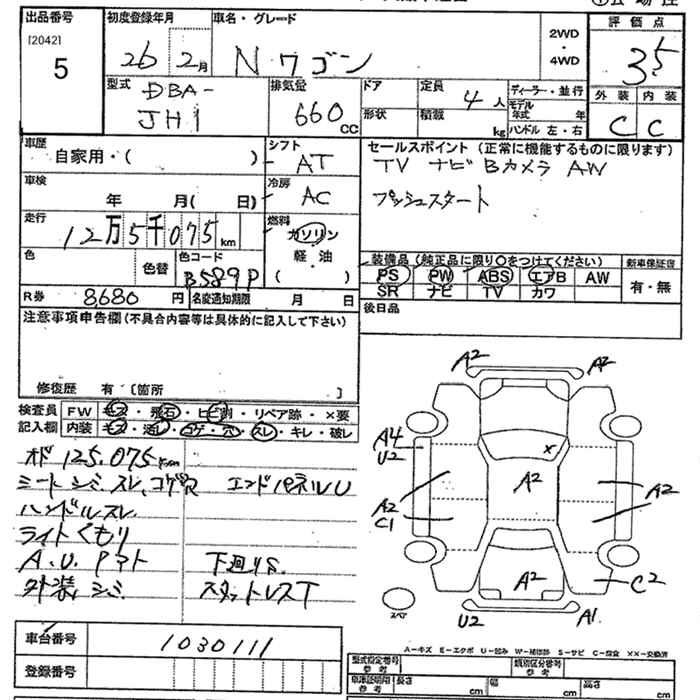 出品番号 初度登録年月 車名・グレード 評価点
[2042]
5
26 2月 Nワゴン
2WD・4WD
35
型式 DBA-JH1
排気量 660cc
ドア 定員 4人
形状 積載 kg
ディーラー・並行
モデル年式 年
ハンドル 左・右
外装 内装
C C
車歴 自家用・( )
シフト AT
セールスポイント (正常に機能するものに限ります)
TV ナビ Bカメラ AW
プッシュスタート
車検 年 月( 日)
冷房 AC
走行 12万5千075km
燃料 ガソリン
軽油
( )
色 色替 色コード B589P
装備品 (純正品に限り○をつけてください) 新車保証書
PS PW ABS エアB AW
SR ナビ TV カワ
有・無
R券 8680円 名変通知期限 月 日
後日品
注意事項申告欄(不具合内容等は具体的に記入して下さい)
修復歴 有〔箇所 〕
検査員記入欄
FW キズ・飛石・ヒビ割・リペア跡・×要
内装 キズ・汚レ・コゲ・穴・スレ・キレ・破レ
オド 125.075km
シートシミ、スレ、コゲ穴 エンドパネルU
ハンドルスレ
ライトくもり
A.U.Pマト 下廻りS
外装シミ スタットレスT
A2 A2
A4
U2
A2
C1
×
A2
A2
A2
C2
U2 A1
スペア
車台番号 1030111
登録番号
A-キズ E-エクボ U-凹み W-補修跡 S-サビ C-腐食 ××-交換済
型式指定番号 参考 類別区分番号 参考
車庫証明用 参考 長さ cm 幅 cm 高さ cm